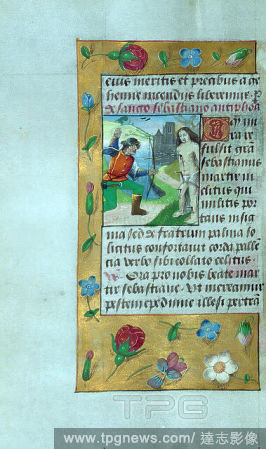 eius meritis et precibus a ge
henne incendiis liberemur. P
de sancto sebastiano antiphona
gra
sulsit gra
sebastianus
martir in
clitus qui
militis por
tans insi
nia sed de fratrum palma so
licitus confortavit corda palle
cia verbo sibi collato celitus
Ora pro nobis beate mar
tir sebastiane Ut mereamur
pestem epidimie illesi pertran
TPG
www.tpgnews.com/ 達志影像